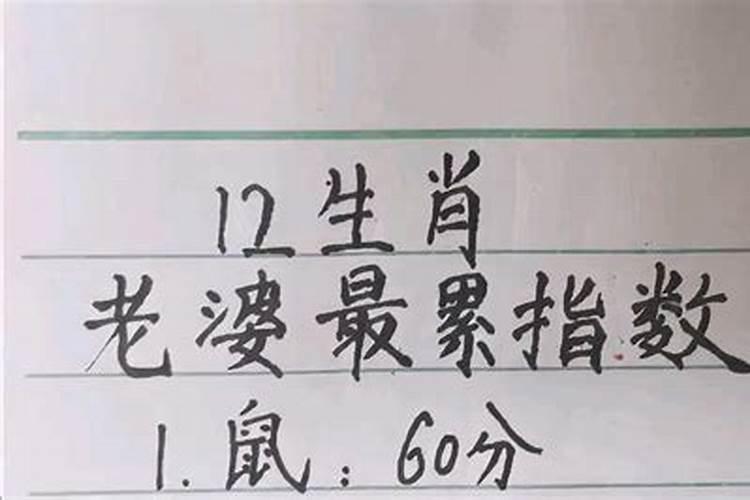 12生肖
老婆最累指数
1.鼠：60分